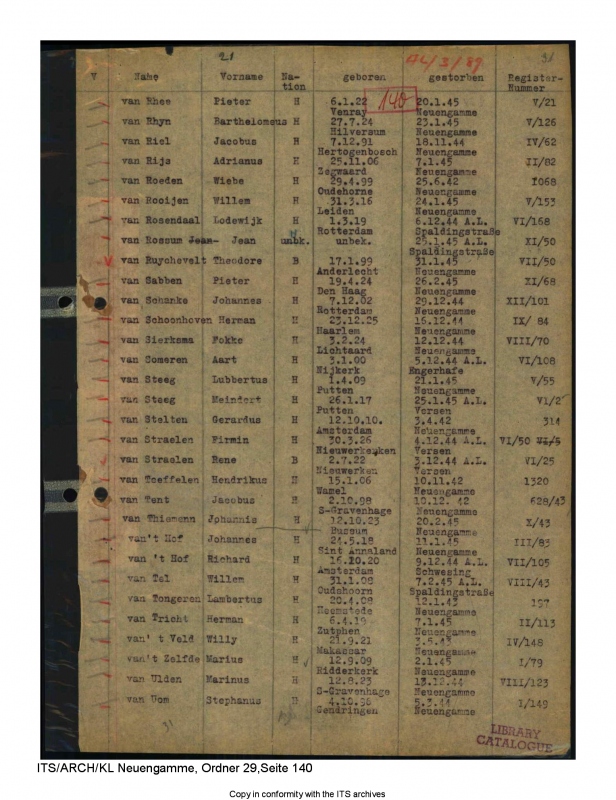 21 AL/3/89 31
V Name Vorname Na-tion geboren gestorben Register-Nummer
140
van Rhee Pieter H 6.1.22 20.1.45 V/21
Venray Neuengamme
van Rhyn Barthelomeus H 27.7.24 23.1.45 V/126
Hilversum Neuengamme
van Riel Jacobus H 7.12.91 18.11.44 IV/62
Hertogenbosch Neuengamme
van Rijs Adrianus H 25.11.06 7.1.45 II/82
Zegwaard Neuengamme
van Roeden Wiebe H 29.4.99 25.6.42 1068
Oudehorne Neuengamme
van Rooijen Willem H 31.3.16 24.1.45 V/153
Leiden Neuengamme
van Rosendaal Lodewijk H 1.3.19 6.12.44 A.L. VI/168
Rotterdam Spaldingstraße
van Rossum Jean- Jean unbk. unbek. 25.1.45 A.L. XI/50
Spaldingstraße
van Ruychevelt Theodore B 17.1.99 31.1.45 VII/50
Anderlecht Neuengamme
van Sabben Pieter H 19.4.24 26.2.45 XI/68
Den Haag Neuengamme
van Schanke Johannes H 7.12.02 29.12.44 XII/101
Rotterdam Neuengamme
van Schoonhoven Herman H 23.12.25 16.12.44 IX/ 84
Haarlem Neuengamme
van Sierksma Fokke H 3.2.24 12.12.44 VIII/70
Lichtaard Neuengamme
van Someren Aart H 3.1.00 5.12.44 A.L. VI/108
Nijkerk Engerhafe
van Steeg Lubbertus H 1.4.09 21.1.45 V/55
Putten Neuengamme
van Steeg Meindert H 26.1.17 25.1.45 A.L. VI/2
Putten Versen
van Stelten Gerardus H 12.10.10. 3.4.42 314
Amsterdam Neuengamme
van Straelen Firmin H 30.3.26 4.12.44 A.L. VI/50
Nieuwerkerken Versen
van Straelen Rene B 2.7.22 3.12.44 A.L. VI/25
Nieuwerken Versen
van Teeffelen Hendrikus H 15.1.06 10.11.42 1320
Wamel Neuengamme
van Tent Jacobus H 2.10.98 10.12. 42 628/43
S-Gravenhage Neuengamme
van Thiemann Johannis H 12.10.23 20.2.45 X/43
Bussum Neuengamme
van't Hof Johannes H 24.5.18 11.1.45 III/83
Sint Annaland Neuengamme
van 't Hof Richard H 16.10.20 9.12.44 A.L. VII/105
Amsterdam Schwesing
van Tel Willem H 31.1.08 7.2.45 A.L. VIII/43
Oudshoorn Spaldingstraße
van Tongeren Lambertus H 20.4.08 12.1.43 157
Heemstede Neuengamme
van Tricht Herman H 6.4.19 7.1.45 II/113
Zutphen Neuengamme
van' t Veld Willy H 21.9.21 3.5.43 IV/148
Makassar Neuengamme
van't Zelfde Marius H 12.9.09 2.1.45 I/79
Ridderkerk Neuengamme
van Ulden Marinus H 12.8.23 13.12.44 VIII/123
S-Gravenhage Neuengamme
van Uom Stephanus H 4.10.96 5.3.44 I/149
Gendringen Neuengamme
31
LIBRARY
CATALOGUE
ITS/ARCH/KL Neuengamme, Ordner 29,Seite 140
Copy in conformity with the ITS archives